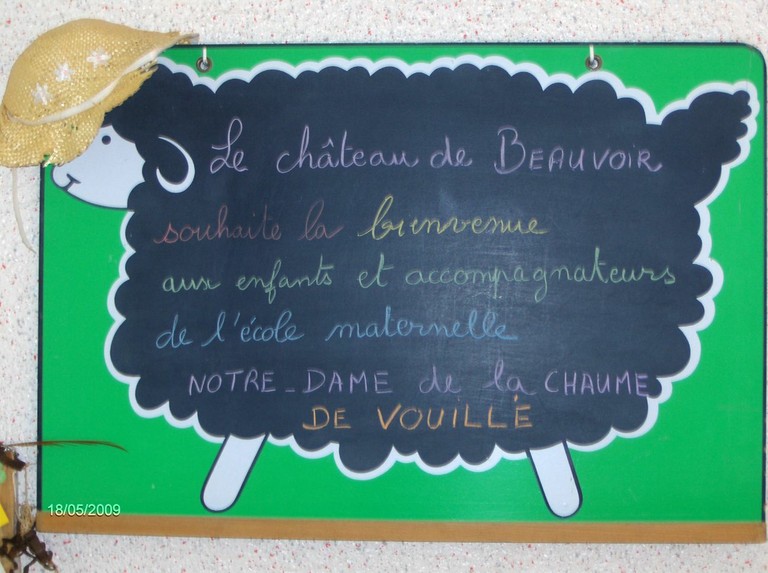 Le château de BEAUVOIR
souhaite la bienvenue
aux enfants et accompagnateurs
de l'école maternelle
NOTRE-DAME de la CHAUME
DE VOUILLÉ
18/05/2009